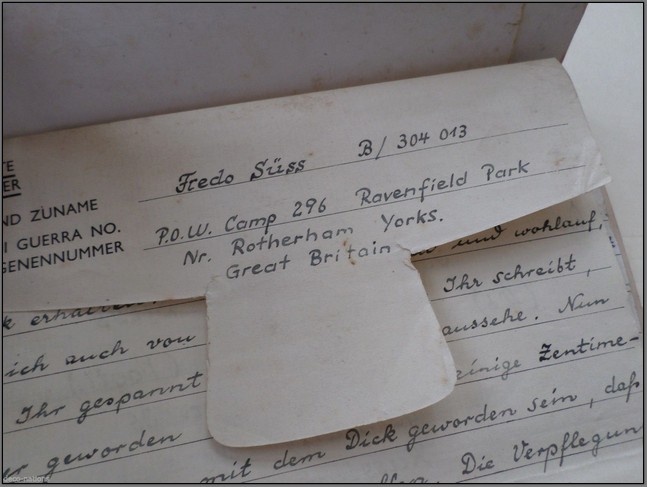 TE
ER
Fredo Süss B/ 304 013
ND ZUNAME
I GUERRA NO.
GENENNUMMER
P.O.W. Camp 296 Ravenfield Park
Nr. Rotherham Yorks.
Great Britain
und wohlauf,
k erhalten,
Ihr schreibt,
ich auch von
aussehe. Nun
Ihr gespannt
einige Zentime-
er geworden
mit dem Dick geworden sein, daß
Die Verpflegun